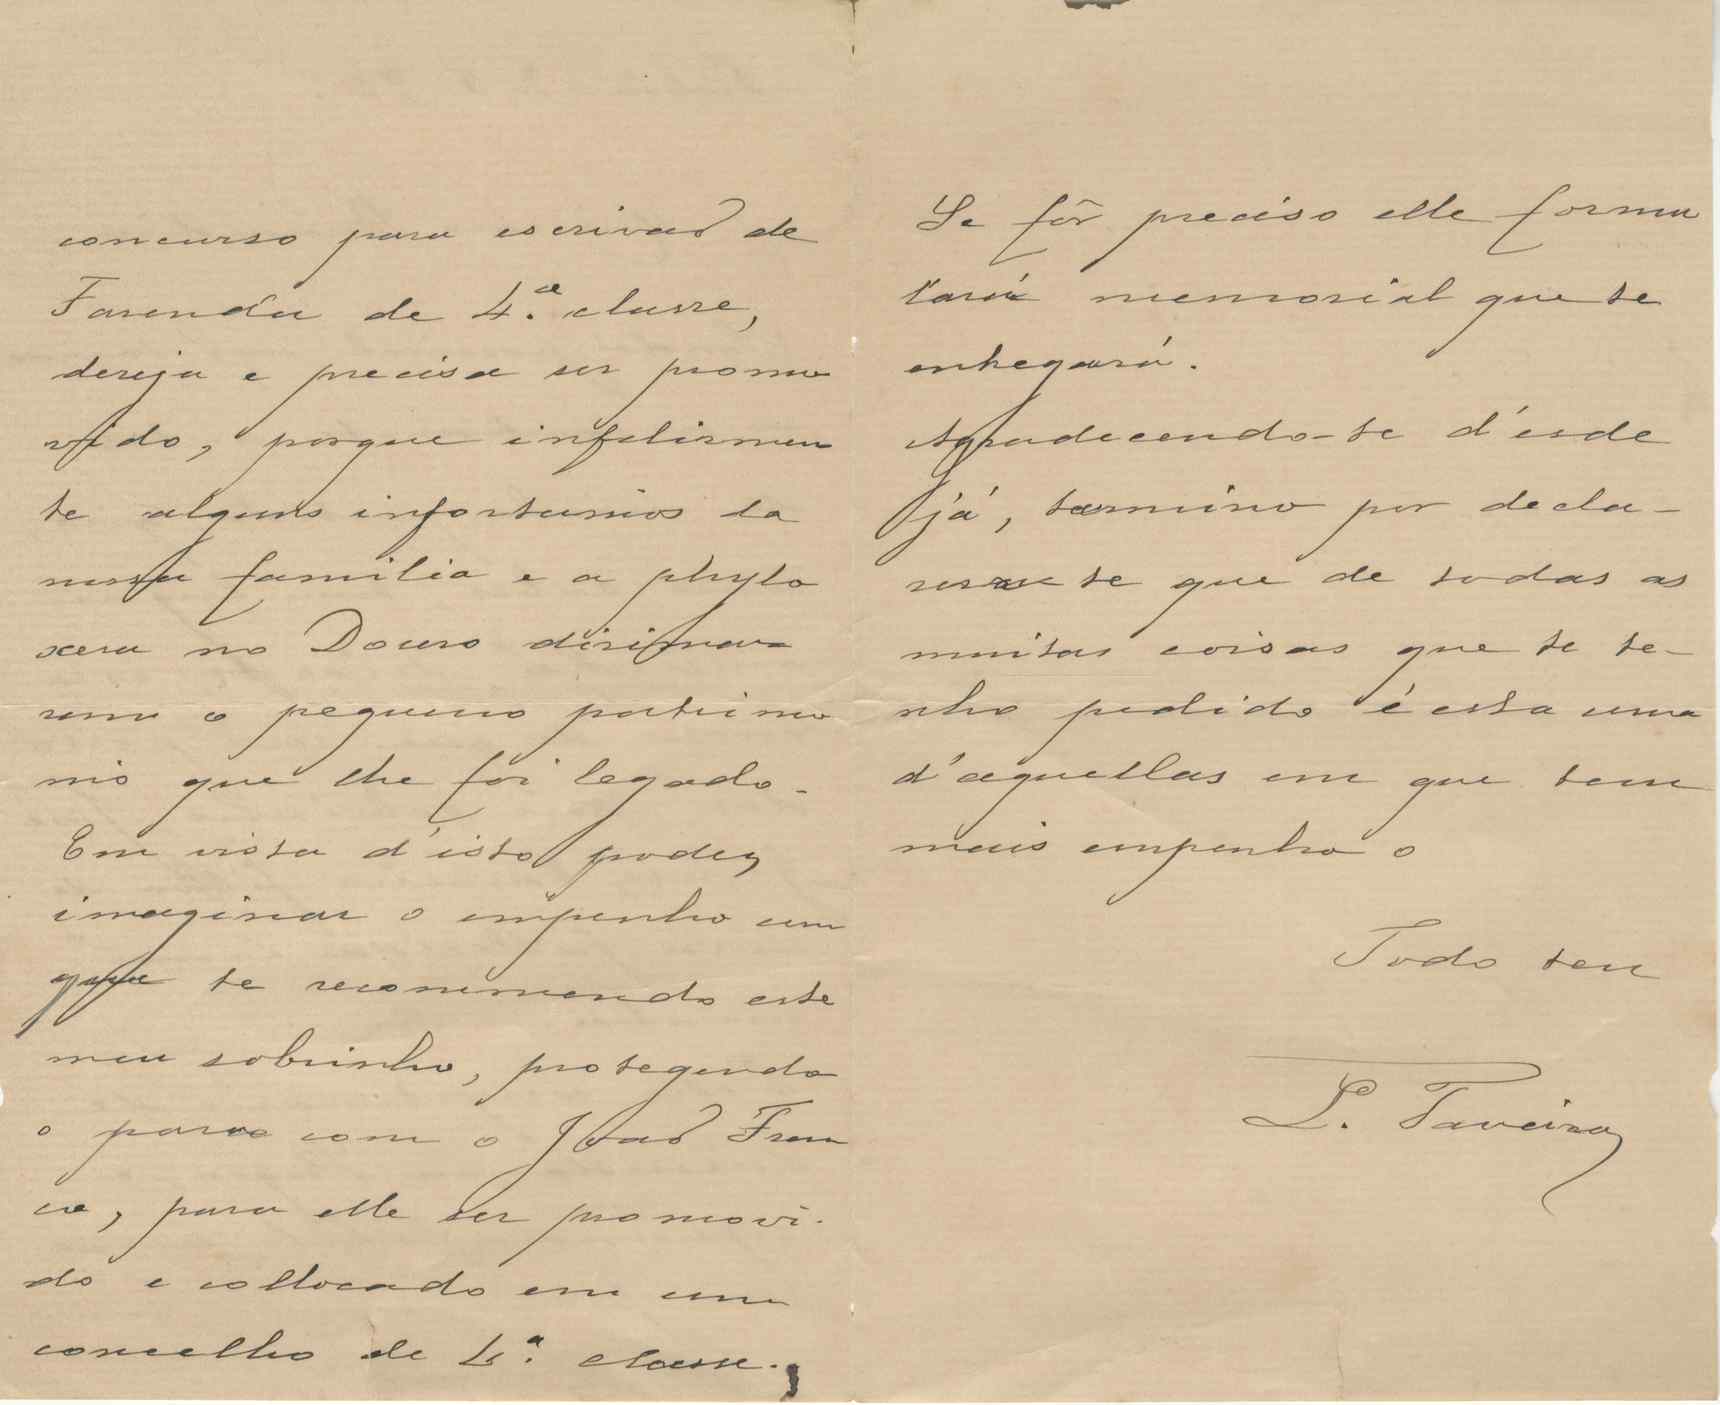 concurso para escrivão de
Fazenda de 4.ª classe,
deseja e precisa ser promo
vido, porque infelizmen
te alguns infortunios da
nossa familia e a phylo
xera no Douro dizimara
ram o pequeno patrimo
nio que lhe foi legado.
Em vista d'isto podes
imaginar o empenho em
que te recommendo este
meu sobrinho, protegendo
o para com o João Fran
co, para elle ser promovi-
do e collocado em um
concelho de 4.ª classe.
Se fôr preciso elle formu
lará memorial que te
entregará.
Agradecendo-te d'esde
já, termino por decla-
rar te que de todas as
muitas coisas que te te-
nho pedido é esta uma
d'aquellas em que tem
mais empenho o
Todo teu
L. Taveira